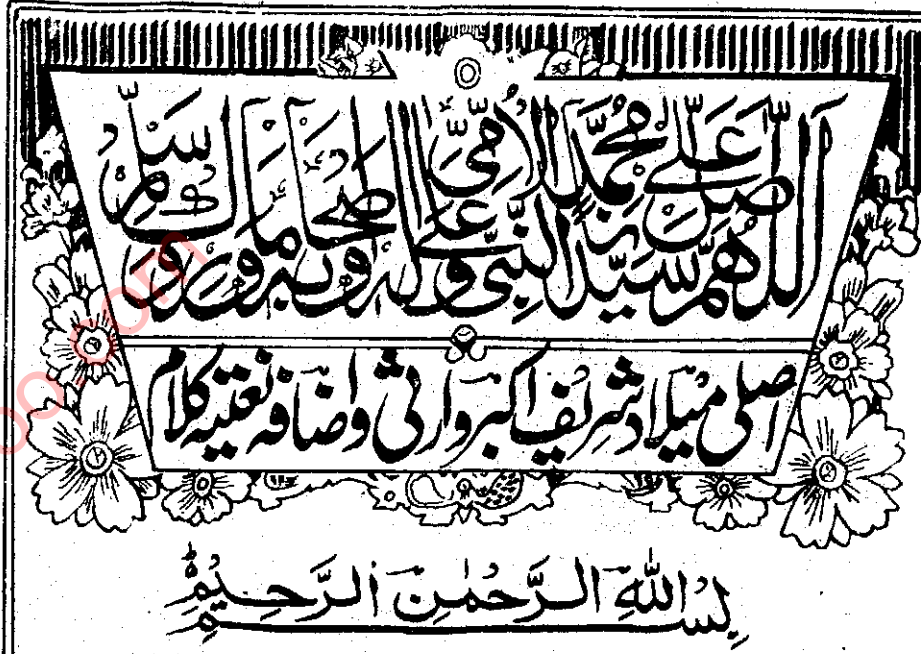 اَللّٰهُمَّ صَلِّ عَلٰى سَيِّدِنَا مُحَمَّدِ النَّبِىِّ الْاُمِّىِّ وَعَلٰى اٰلِهٖ وَاَصْحَابِهٖ وَبَارِكْ وَسَلِّمْ
اصلی میلاد شریف اکبر وارثی و اضافہ نعتیہ کلام
بِسْمِ اللّٰهِ الرَّحْمٰنِ الرَّحِيْمِ
oo.com